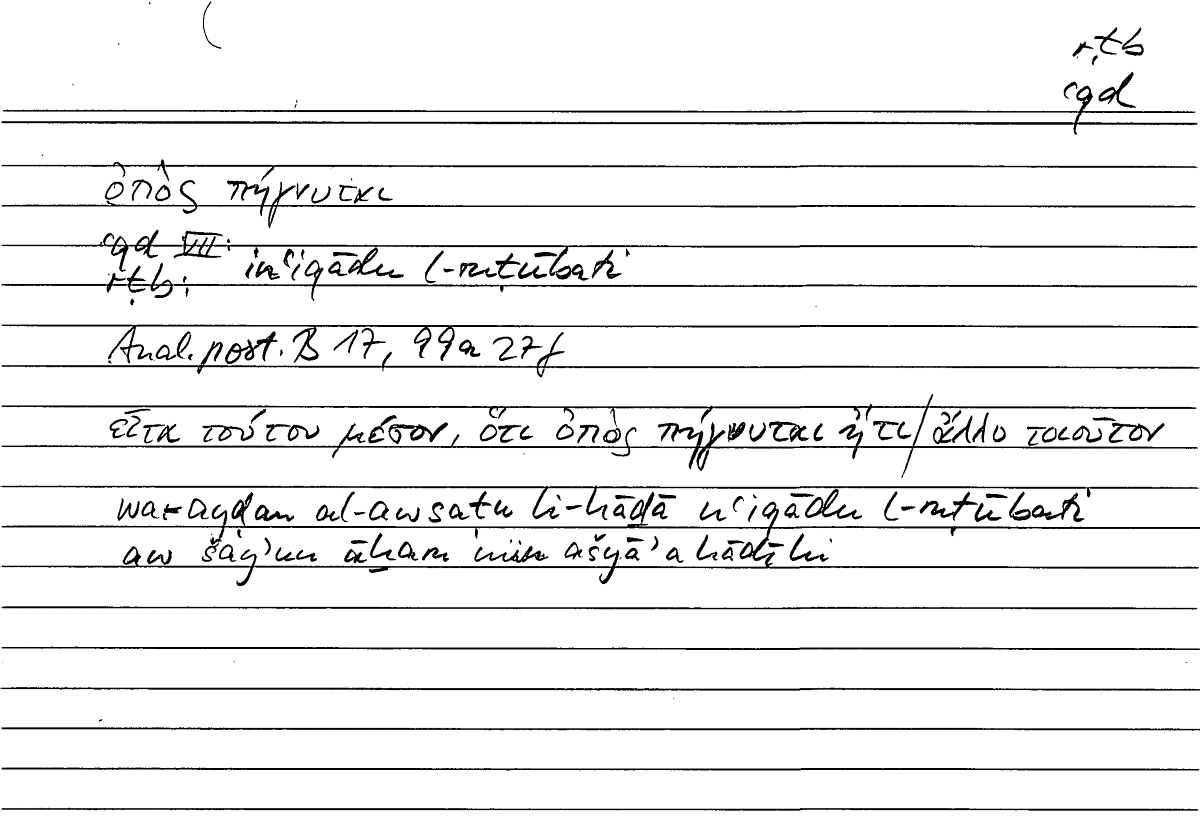 rṭb
ʿqd
ὀπὸς πήγνυται
ʿqd VII:
rṭb: inʿiqādu l-ruṭūbati
Anal. post. B 17, 99a 27f
εἶτα τούτου μέσον, ὅτι ὀπὸς πήγνυται ἤ τι / ἄλλο τοιοῦτον
wa-ayḍan al-awsaṭu li-hāḏā nʿiqādu l-ruṭūbati
aw šayʾun āḫaru min ašyāʾa hāḏihi